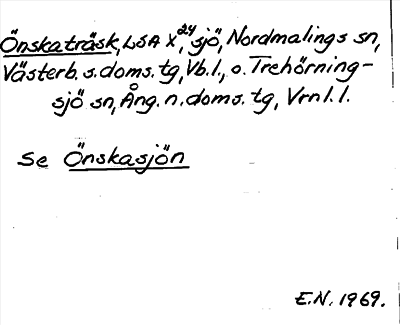 Önskaträsk, LSA X²⁴, sjö, Nordmalings sn,
Västerb. s. doms. tg, Vb. l., o. Trehörning-
sjö sn, Ång. n. doms. tg, Vrnl. l.
Se Önskasjön
E.N. 1969.